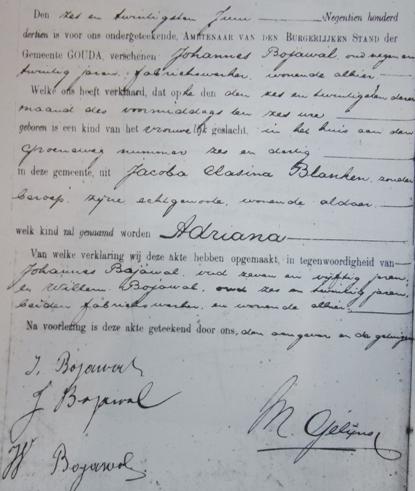 Den zes en twintigsten Juni Negentien honderd
dertien is voor ons ondergeteekende, AMBTENAAR VAN DEN BURGERLIJKEN STAND der
Gemeente GOUDA, verschenen Johannes Bojawal, oud negen en
twintig jaren, fabriekswerker, wonende alhier
Welke ons heeft verklaard, dat op den zes en twintigsten dezer
maand des voormiddags ten zes ure
geboren is een kind van het vrouwelijk geslacht, in het huis aan den
Groeneweg nummer zes en dertig
in deze gemeente, uit Jacoba Clasina Blanken, zonder
beroep, zijne echtgenoote, wonende aldaar,
welk kind zal genaamd worden Adriana
Van welke verklaring wij deze akte hebben opgemaakt, in tegenwoordigheid van
Johannes Bojawal, oud zeven en vijftig jaren,
en Willem Bojawal, oud zes en twintig jaren,
beiden fabriekswerker, en wonende alhier.
Na voorlezing is deze akte geteekend door ons, den aangever en de getuigen
J. Bojawal
J Bojawal
W Bojawal